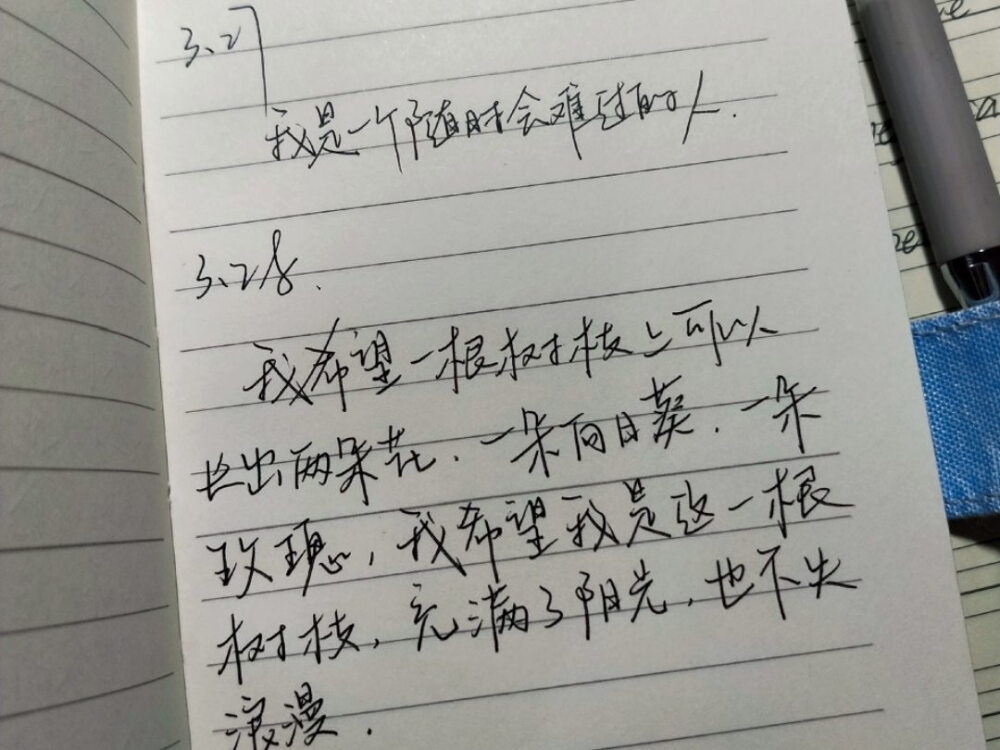 3.27
我是一个随时会难过的人.
3.28.
我希望一根树枝上可以
长出两朵花.一朵向日葵.一朵
玫瑰,我希望我是这一根
树枝,充满了阳光,也不失
浪漫.